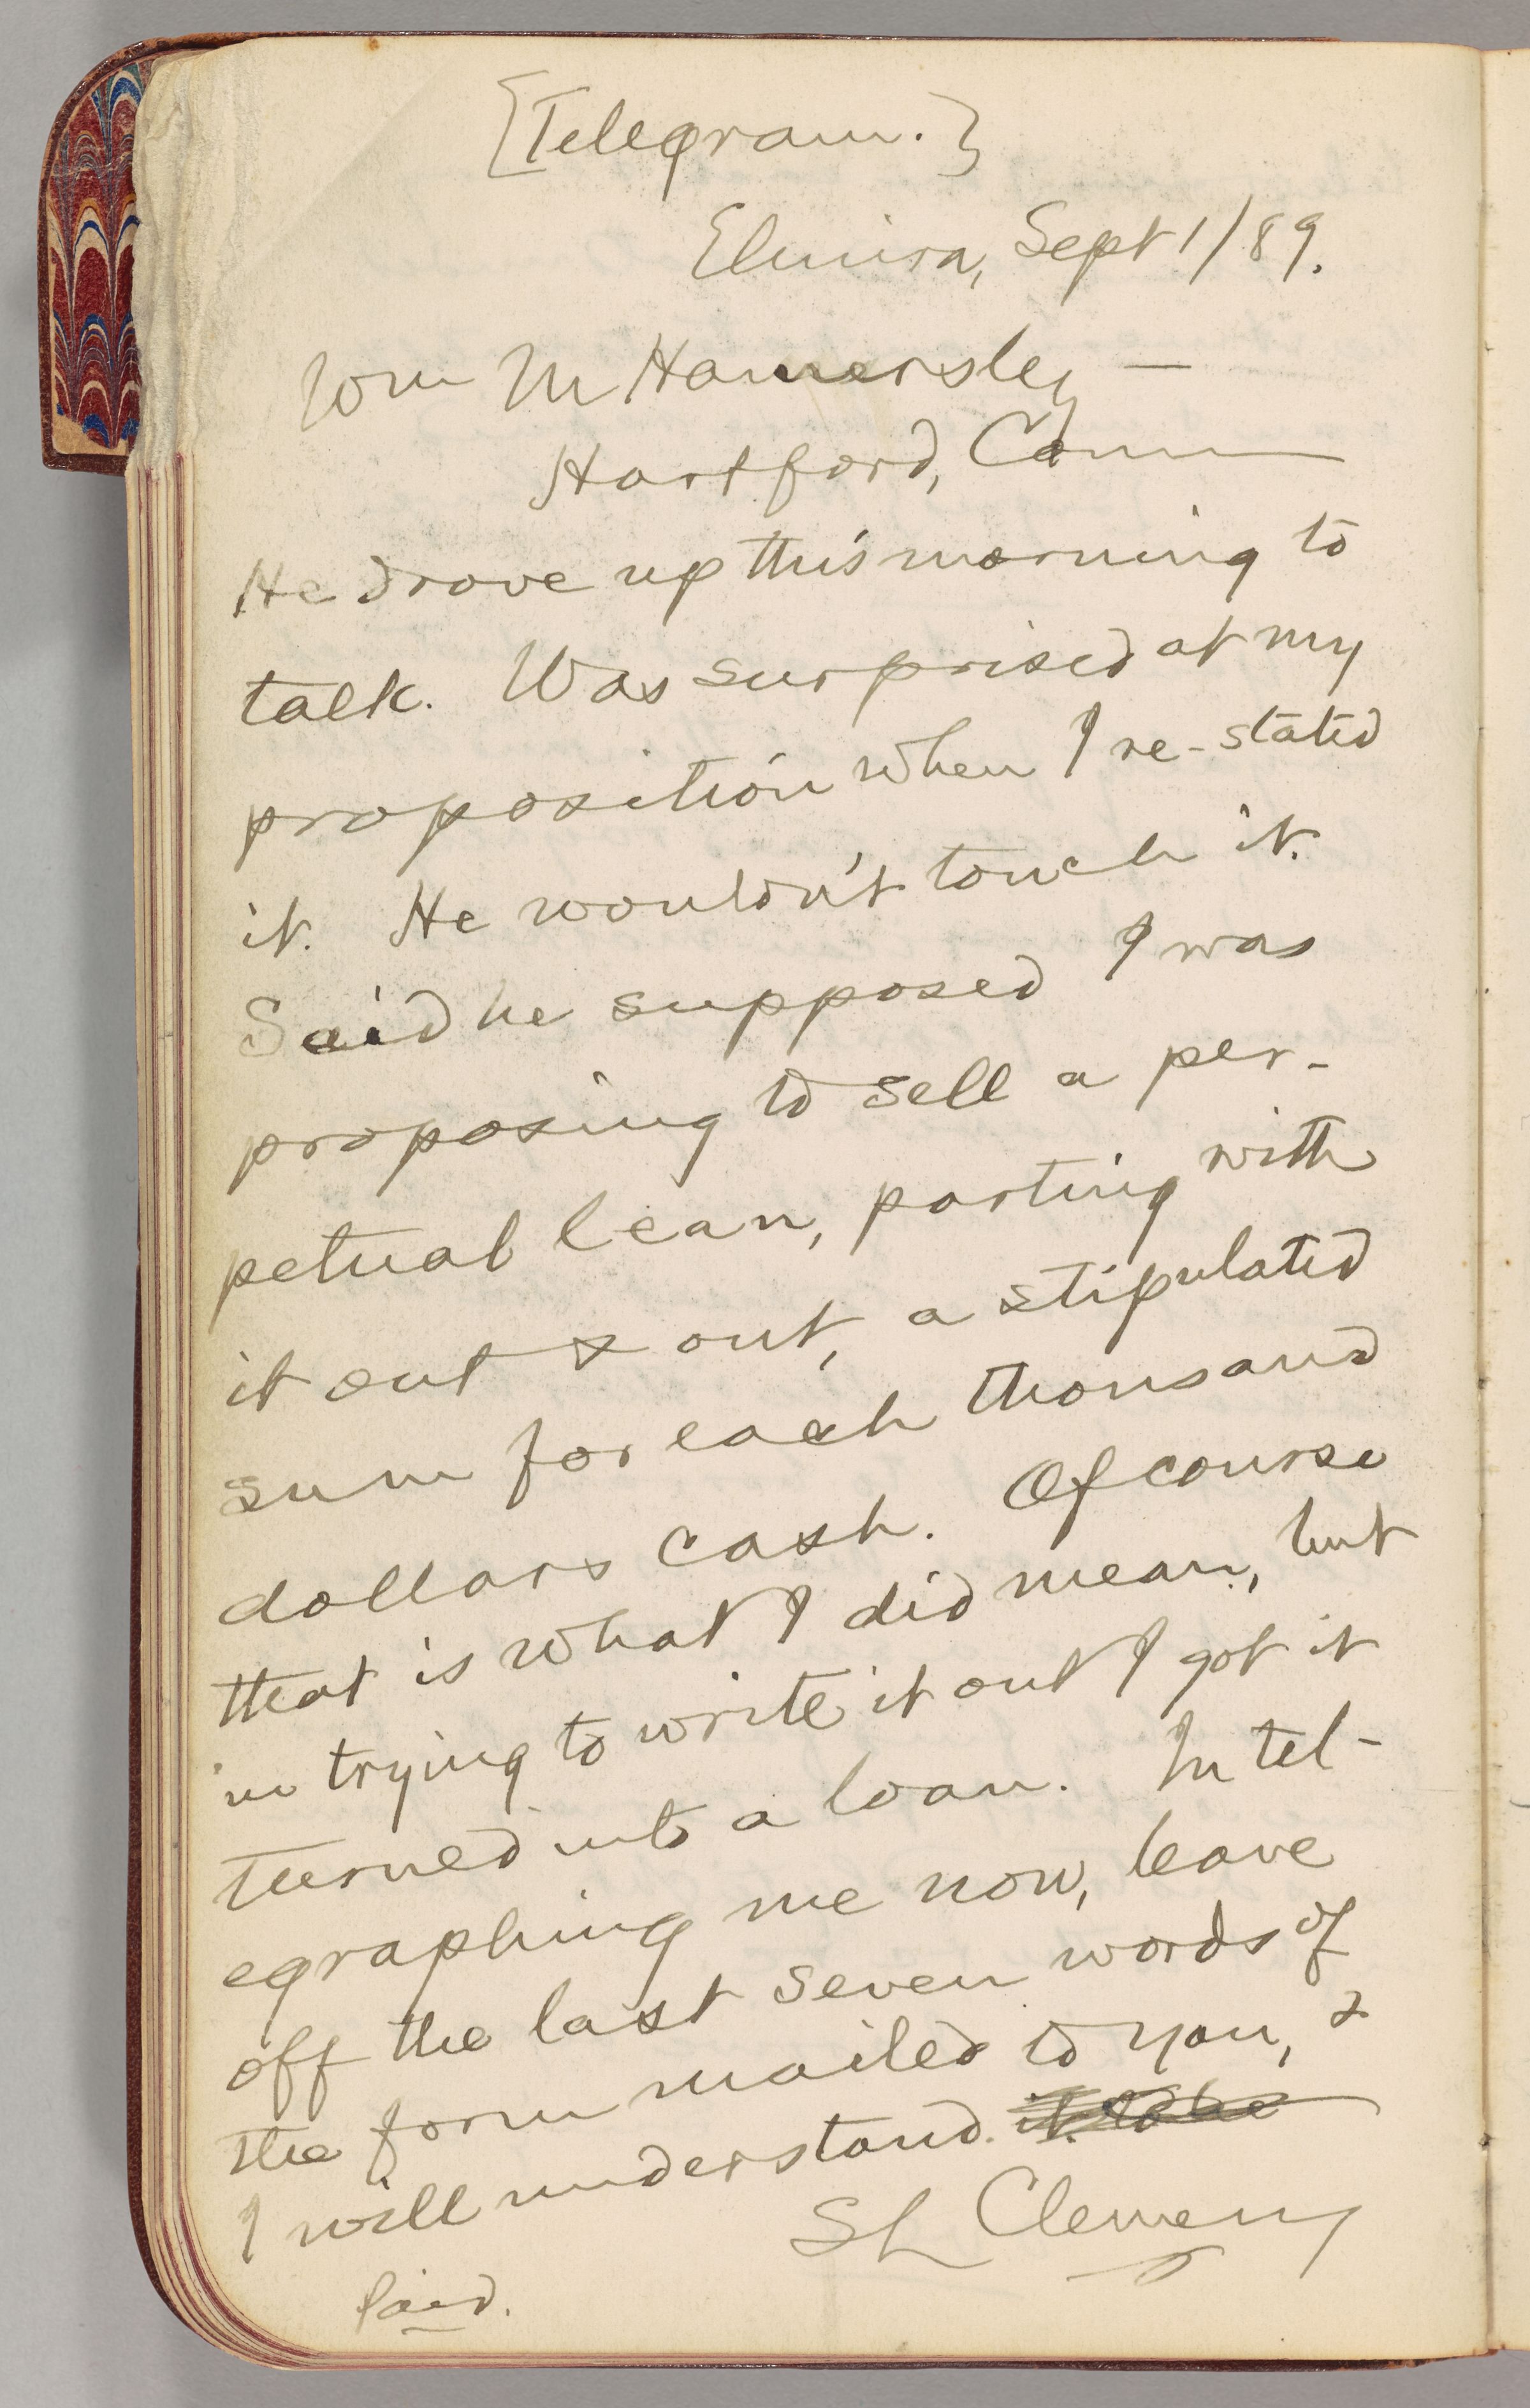 [Telegram.}
Elmira, Sept 1/89.
Wm M Hamersley —
Hartford, Conn
He drove up this morning to
talk. Was surprised at my
proposition when I re-stated
it. He wouldn't touch it.
Said he supposed I was
proposing to sell a per-
petual lean, parting with
it out & out, a stipulated
sum for each thousand
dollars cash. Of course
that is what I did mean, but
in trying to write it out I got it
turned into a loan. In tel-
egraphing me now, leave
off the last seven words of
the form mailed to you, &
I will understand.
SL Clemens
Paid.